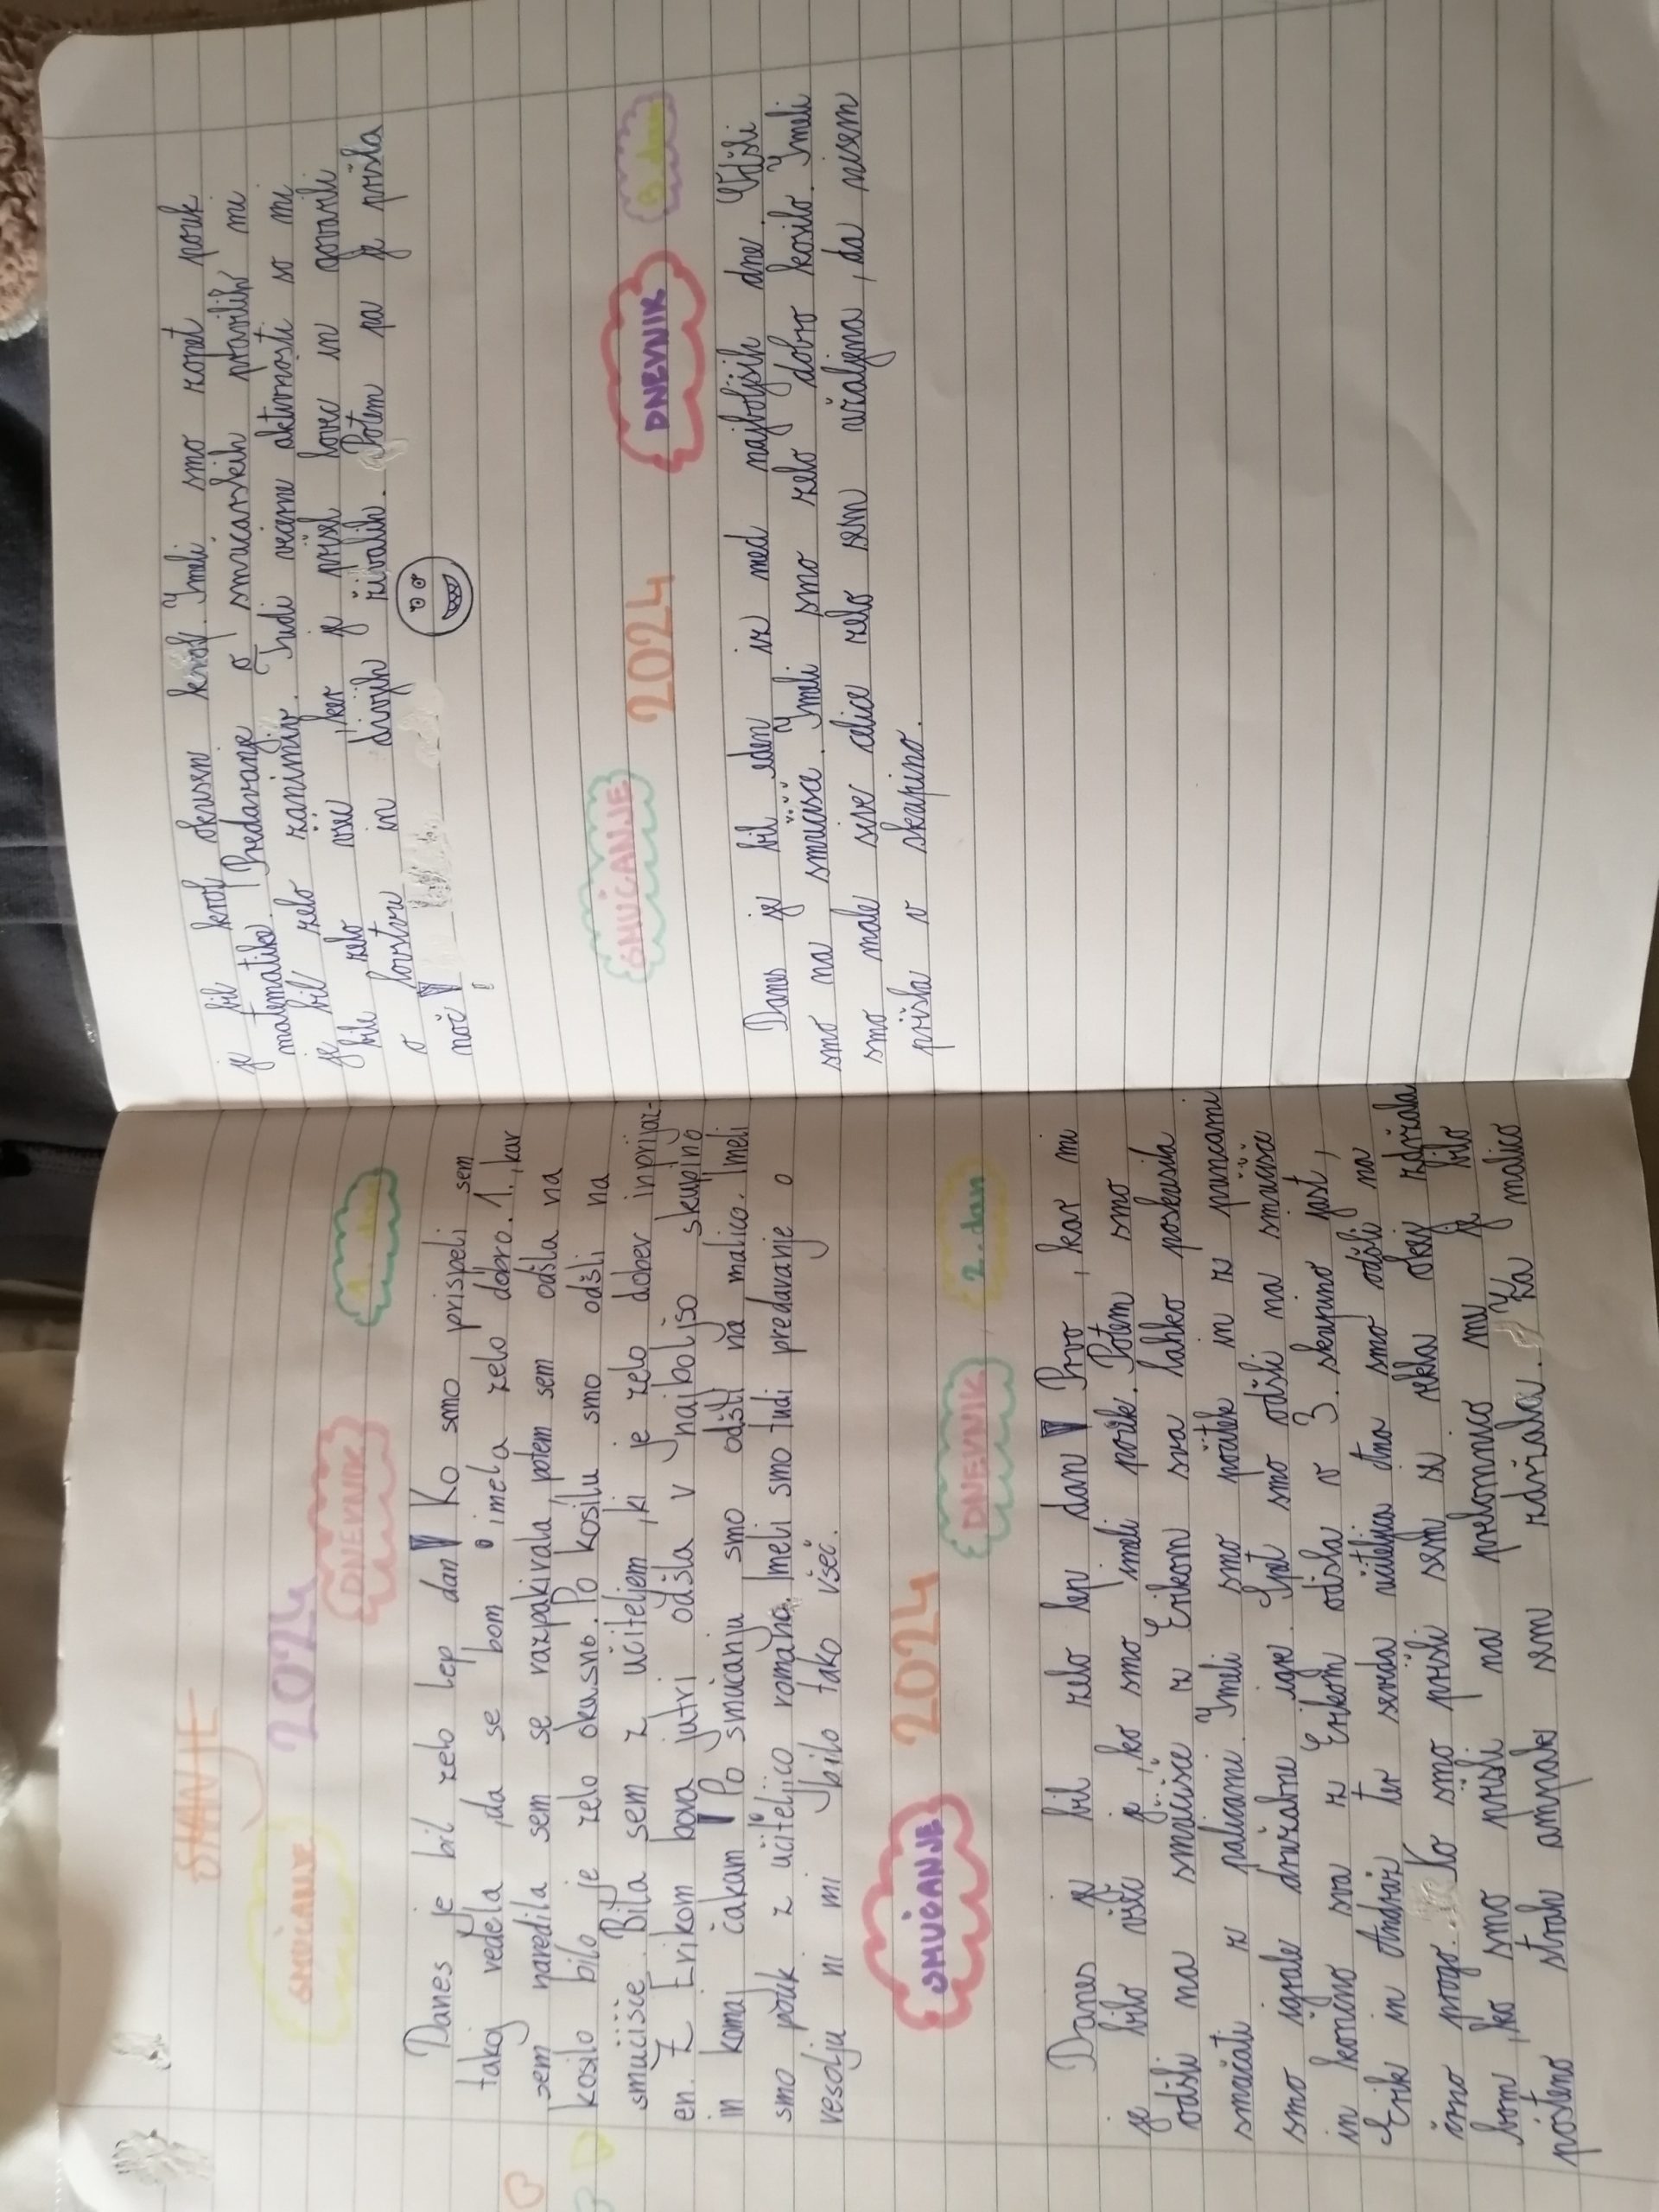 SMUČANJE
2024
DNEVNIK
1. dan
Danes je bil zelo lep dan! Ko smo prispeli sem
takoj vedela, da se bom imela zelo dobro. 1., kar
sem naredila sem se razpakirala, potem sem odšla na
kosilo bilo je zelo okusno. Po kosilu smo odšli na
smučišče. Bila sem z učiteljem, ki je zelo dober inprijaz-
en. Z Erikom bova jutri odšla v najboljšo skupino
in komaj čakam! Po smučanju smo odšli na malico. Imeli
smo pouk z učiteljico romano. Imeli smo tudi predavanje o
vesolju ni mi bilo tako všeč.
SMUČANJE 2024 DNEVNIK 2. dan
Danes je bil zelo lep dan! Prvo, kar mi
je bilo všeč je, ko smo imeli pouk. Potem smo
odšli na smučišče z Erikom sva lahko poskusila
smučati z palicami. Imeli smo počitek in z puncami
smo igrale družabne igre. Spet smo odšli na smučišče
in končno sva z Erikom odšla v 3. skupino jast,
Erik in Andraž ter seveda učiteljica Ana smo odšli na
črno progo. Ko smo prišli sem si rekla okej zdržala
bom, ko smo prišli na prelomnico me je bilo
pošteno strah ampak sem zdržala. Za malico
je bil krof okusen krof. Imeli smo zopet pouk
matematike. Predavanje o smučarskih pravilih mi
je bil zelo zanimiv. Tudi večerne aktivnosti so mi
bile zelo všeč, ker je prišel lovec in govorili
o lovstvu in divjih živalih. Potem pa je prišla
noč!
SMUČANJE 2024 DNEVNIK 3. dan
Danes je bil eden iz med najboljših dne. Odšli
smo na smučišče. Imeli smo zelo dobro kosilo. Imeli
smo male sive celice zelo sem užaljena, da nisem
prišla v skupino.